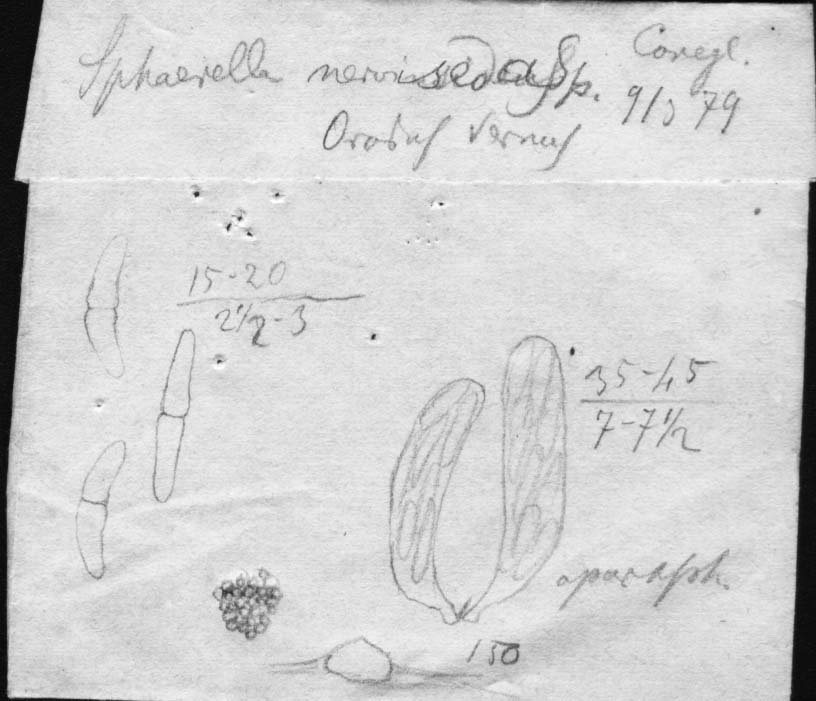 Sphaerella nervisedasp. Conegl.
Orobus vernus 9/3 79
15-20
2 1/2-3
35-45
7-7 1/2
aparaph.
150